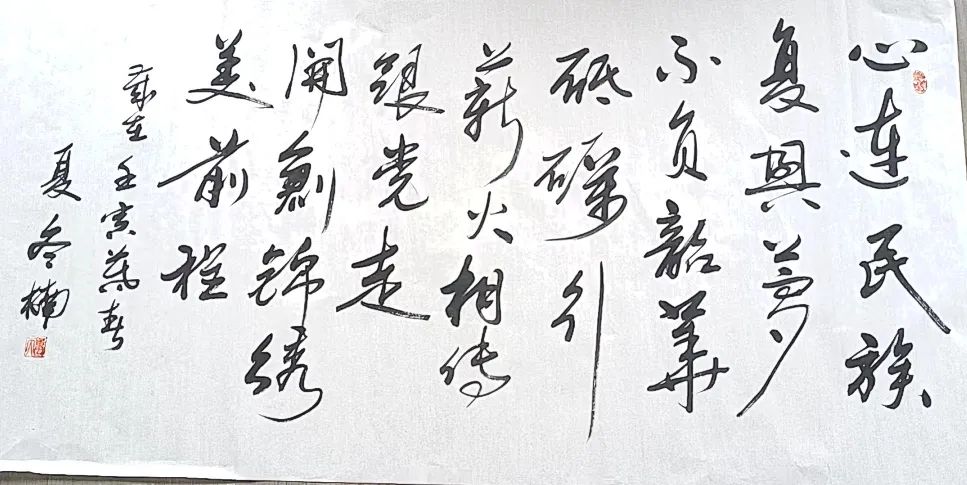 心连民族
复兴梦
不负韶华
砥砺行
薪火相传
跟党走
开创锦绣
美前程
岁在壬寅暮春
夏冬楠